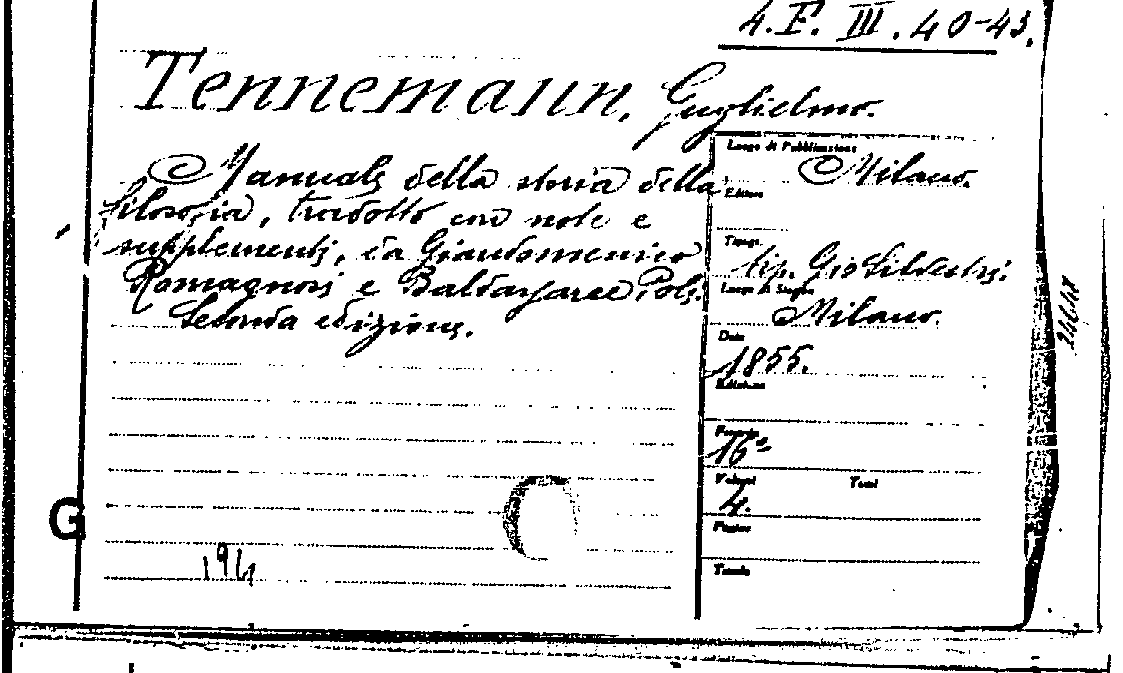 4.F. III. 40-43.
Tennemann, Guglielmo.
Manuale della storia della
filosofia, tradotto con note e
supplementi, da Giandomenico
Romagnosi e Baldassarre Poli.
Seconda edizione.
Luogo di Pubblicazione
Milano.
Editore
Tipogr.
tip. Gio Silvestri.
Luogo di Stampa
Milano.
Data
1855.
Edizione
Formato
16°
Volumi Tomi
4.
Pagine
Tavole
G